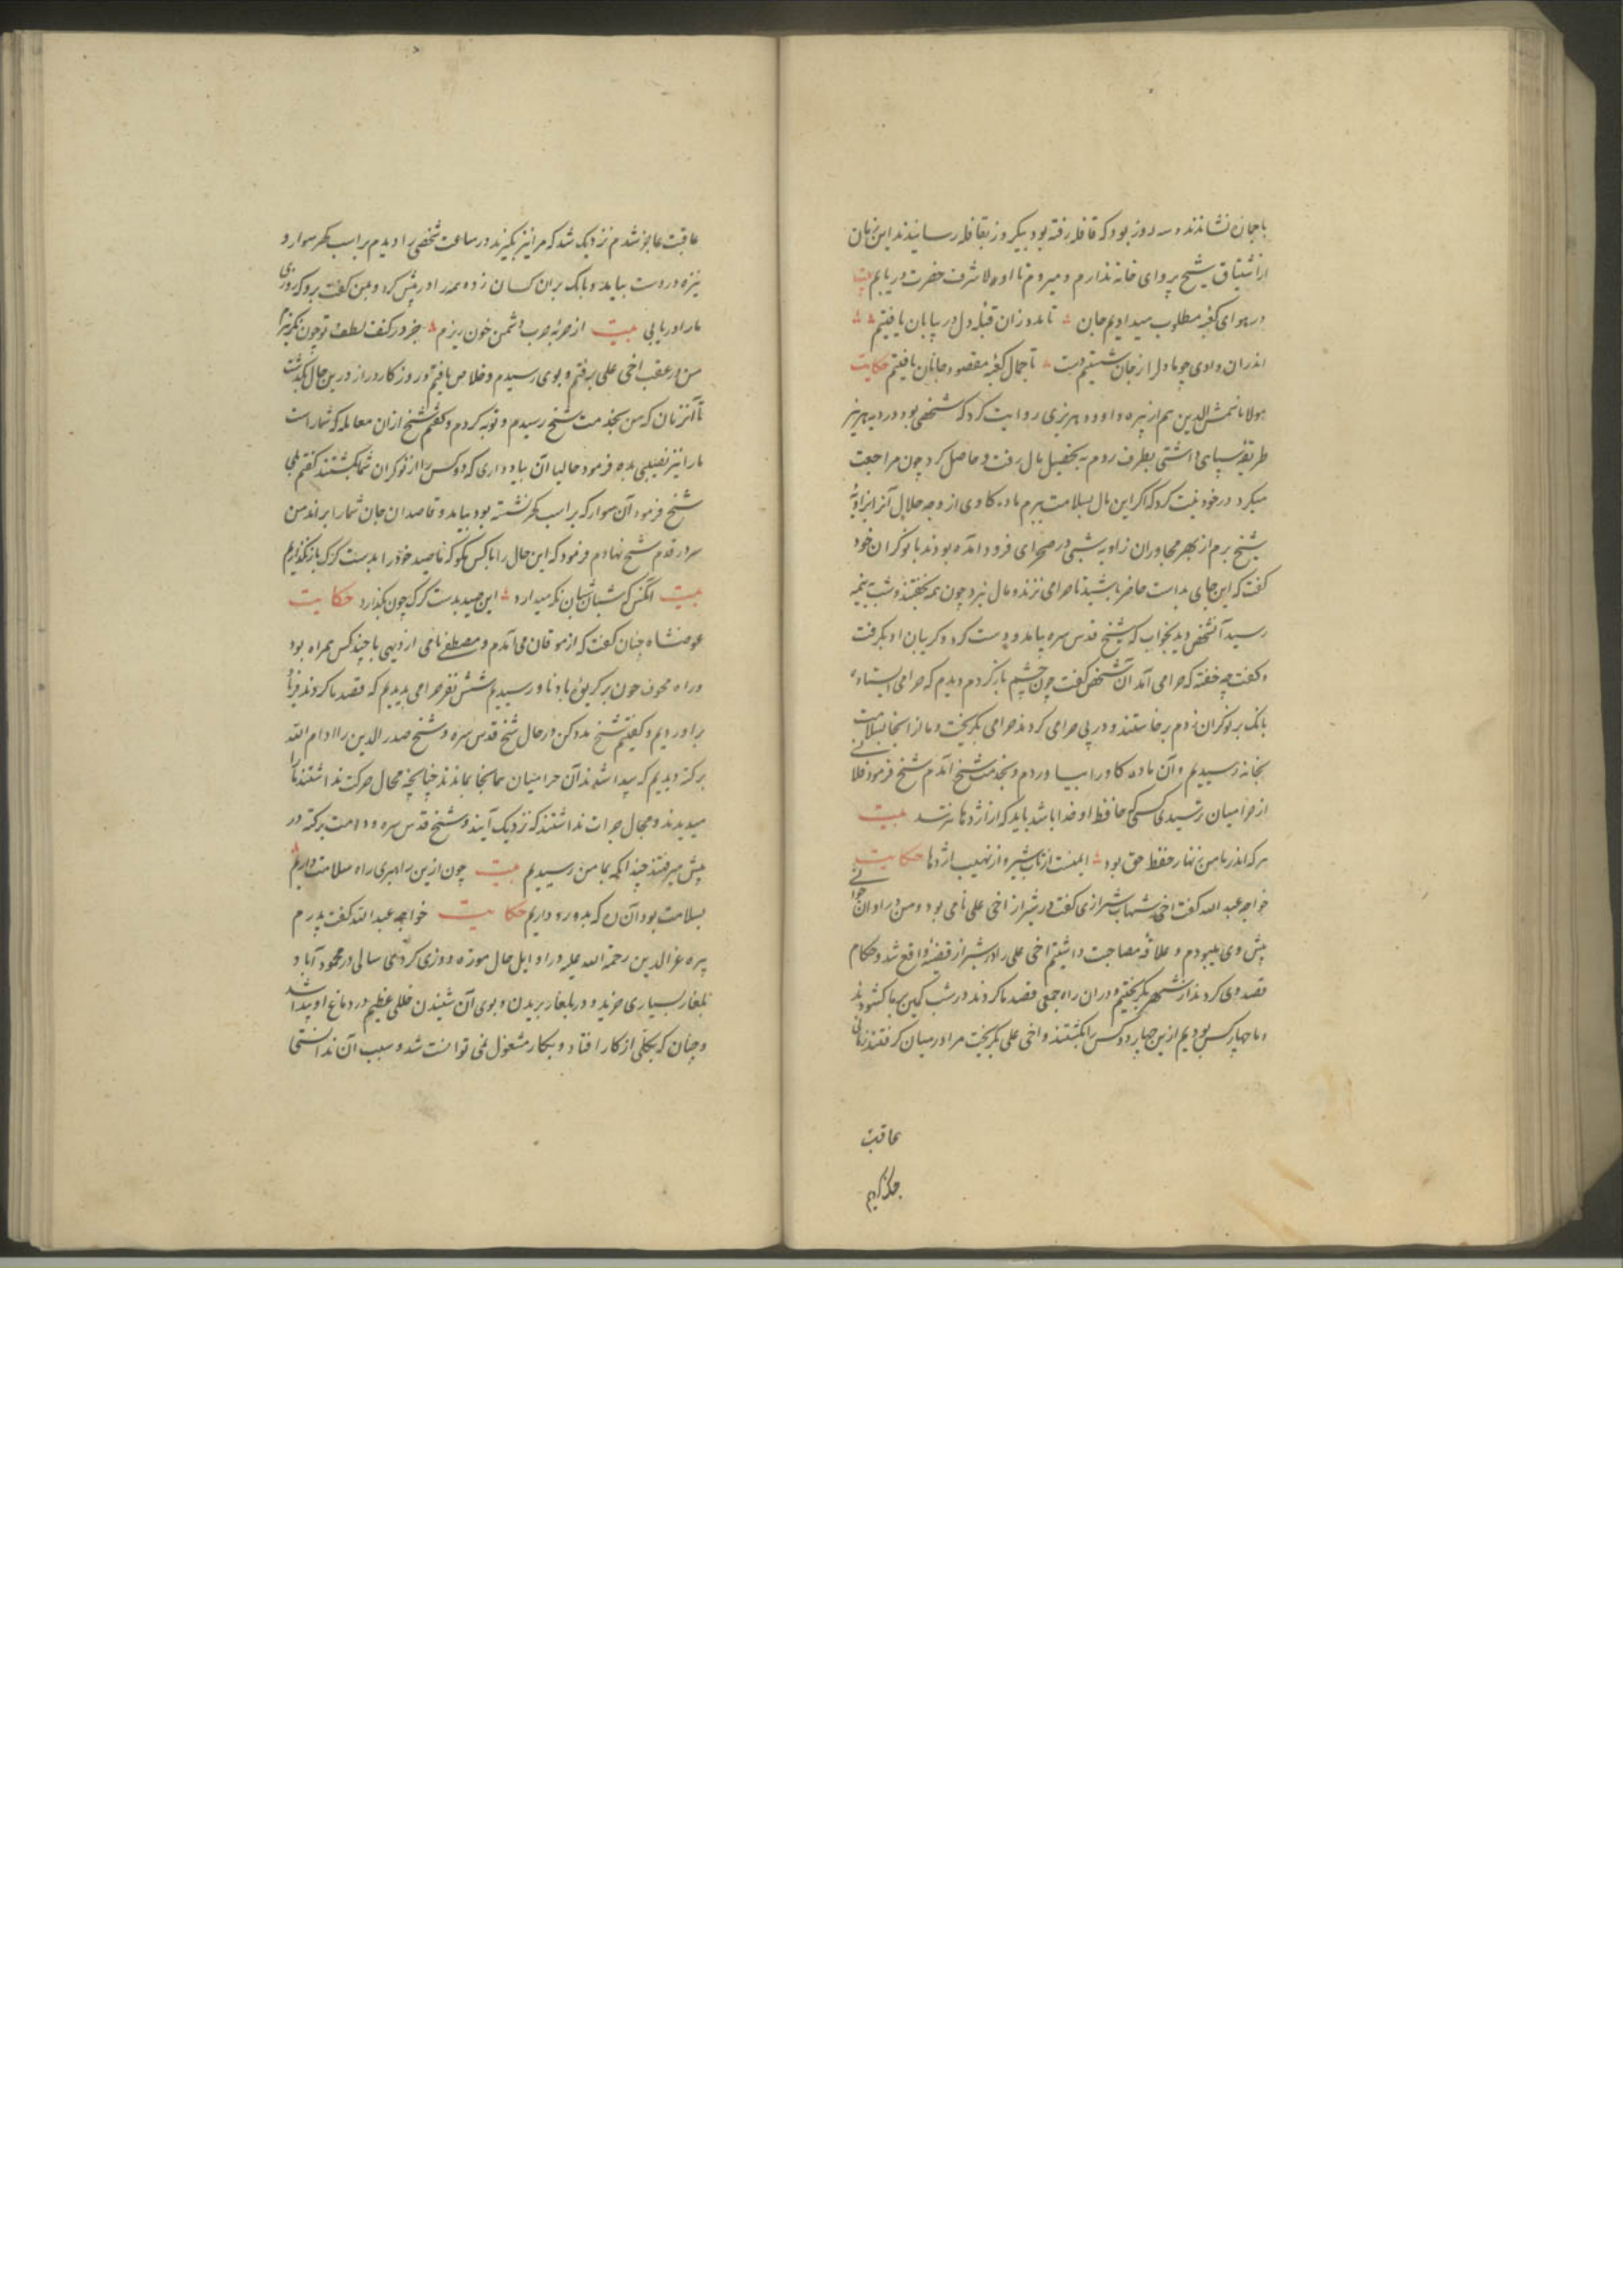 با جان نشاندند و سه روز بود که قافله رفته بود بیکروز بقافله رسانیدند این زمان
از اشتیاق شیخ پروای خانه ندارم و میروم تا اولا شرف حضرت دریابم بیت
در هوای کعبه مطلوب میدادیم جان تا بدو زان قبله دل در بیابان یافتیم
اندران وادی چو ما دل از جان شستیم دست تا جمال کعبه مقصود جانان یافتیم حکایت
مولانا شمس الدین هم از پیره داود روایت کرد که شخصی بود در دیه
طریقه سپاهی داشتی بطرف روم به تحصیل مال رفت و حاصل کرد چون مراجعت
میکرد در خود نیت کرد که اگر این مال بسلامت ببرم ماده کاوی از وجه حلال آنرا بزاویه
شیخ برم از بهر مجاوران زاویه شبی در صحرای فرود آمده بودند با نوکران خود
گفت که این جای بد است حاضر باشید تا حرامی نزند و مال نبرد چون همه بخفتند و شب بنیمه
رسید آنشخص دید بخواب که شیخ قدس سره بیامد و دست کرد و کریبان او بکرفت
و گفت چه خفته که حرامی آمد آن شخص گفت چون چشم باز کردم دیدم که حرامی ایستاده
بانک بر نوکران زدم برخاستند و در پی حرامی کردند حرامی بکریخت و ما از آنجا بسلامت
بخانه رسیدیم و آن ماده کاو را بیاوردم و بخدمت شیخ آمدم شیخ فرمود فلانی
از حرامیان ترسیدی کسی که حافظ او خدا باشد باید که از اژدها نترسد بیت
هر که اندر مامن زنهار حفظ حق بود ایمنست از ناب شیر و از نهیب اژدها حکایت
خواجه عبد الله گفت اخی شهاب شیرازی گفت در شیراز اخی علی نامی بود و من در اوان جوانی
پیش وی میبودم و علاقه مصاحبت داشتم اخی علی را در شیراز قضیه واقع شد و حکام
قصد وی کردند از شهر بکریختیم و در ان راه جمعی قصد ما کردند در شب کمین بر ما کشودند
و ما چهار کس بودیم ازین چهار دو کس را بکشتند و اخی علی بکریخت مرا در میان کرفتند زمانی
عاقبت
عاقبت عاجز شدم نزدیک شد که مرا نیز بکیرند در ساعت شخصی را دیدم بر اسب سوار و
نیزه در دست بیامد و بانک بران کسان زد و همه را در پیش کرد و بمن گفت برو که روزی
ما را دریابی بیت از حربه حرب دشمن خون ریزم جز در کنف لطف تو چون بکریزم
من از عقب اخی علی برفتم و بوی رسیدم و خلاص یافتم و روزکار دراز درین حال بکذشت
تا آنزمان که من بخدمت شیخ رسیدم و توبه کردم و گفتم شیخ ازان معامله که شما راست
ما را نیز نصیبی بده فرمود حالیا آن بیاد داری که دو کس را از نوکران شما بکشتند گفتم بلی
شیخ فرمود آن سوار که بر اسب نشسته بود بیامد و قاصدان جان شما را براند من
سر در قدم شیخ نهادم فرمود که این حال را با کس مکو که ما صید خود را بدست کرک باز نکذاریم
بیت آنکس که شبان شبان نکه میدارد این صید بدست کرک چون بکذارد حکایت
عوضشاه چنان گفت که از موقان می آمدم و مصطفی نامی از دیهی با چند کس همراه بود
و راه مخوف چون بر کریوه رسیدیم شش نفر حرامی بدیدیم که قصد ما کردند فریاد
براوردیم و گفتیم شیخ مدد کن در حال شیخ قدس سره و شیخ صدر الدین را ادام الله
برکته دیدیم که پیدا شدند آن حرامیان همانجا بماندند چنانچه مجال حرکت نداشتند ما را
میدیدند و مجال جرات نداشتند که نزدیک آیند و شیخ قدس سره و دامت برکته در
پیش میرفتند چندانکه بمامن رسیدیم بیت چون ازین راهبری راه سلامت داریم
بسلامت بود آن ره که بدو رو داریم حکایت خواجه عبد الله گفت پدرم
پیره عز الدین رحمة الله علیه در اوایل حال موزه دوزی کردی سالی در محمود آباد
بلغار بسیاری خرید و در بلغار بریدن و بوی آن شنیدن خللی عظیم در دماغ او پیدا شد
و چنان که بکلی از کار افتاد و بکار مشغول نمی توانست شد و سبب آن ندانستی